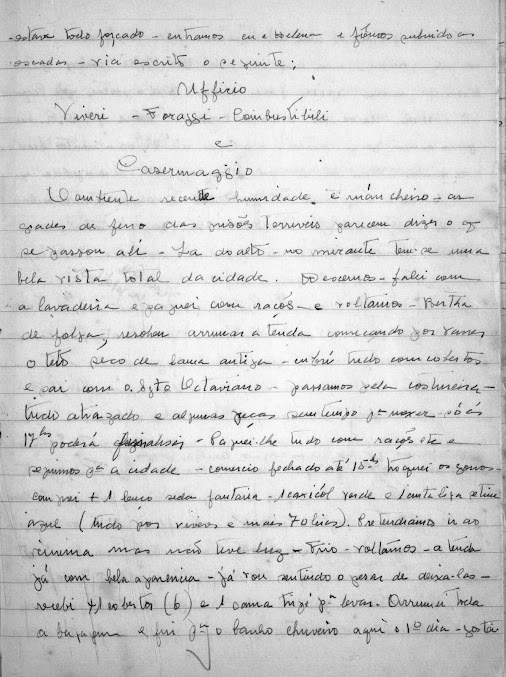 estava todo forçado - entramos eu e Helena e fomos subindo as
escadas - via escrito o seguinte:
Uffizio
Viveri - Foraggi - Combustibili
e
Casermaggio
O ambiente recende humidade e máu cheiro - as
grades de ferro das prisões terriveis parecem dizer o q
se passou ali - La do alto - no mirante tem-se uma
bela vista total da cidade. Descemos - falei com
a lavadeira e paguei com rações - e voltámos - Bertha
de folga, resolveu arrumar a tenda começando por varrer
o teto seco de lama antiga - cobri tudo com cobertos
e sai com o Sgto Octaviano - passamos pela costureira -
tudo atrazado e algumas peças sem tempo pª mexer - só ás
17 hs poderá - Paguei-lhe tudo com rações etc e
seguimos pª a cidade - comercio fechado até 15 hs troquei os
comprei + 1 lenço seda fantasia - 1 verde e 1
azul (tudo por viveres e mais 70 liras). Pretendiamos ir ao
cinema mas não teve luz - Frio - voltámos - a tenda
já com bela aparencia - já vou sentindo o pesar de deixa-las -
recebi + 1 cobertos (6) e 1 cama pª levar. Arrumei toda
a bagagem e fui pª o banho chuveiro aqui o 1º dia - gostei